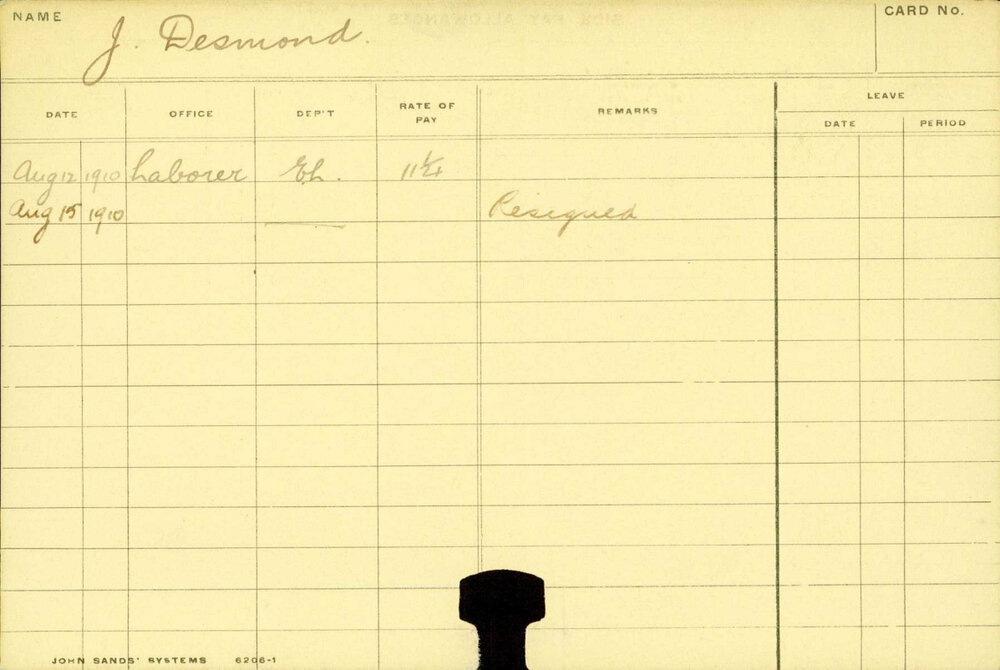 NAME J. Desmond. CARD No.
DATE OFFICE DEP'T RATE OF PAY REMARKS LEAVE
DATE PERIOD
Aug 12 1910 Laborer
Aug 15 1910 Resigned
JOHN SANDS' SYSTEMS 6206-1